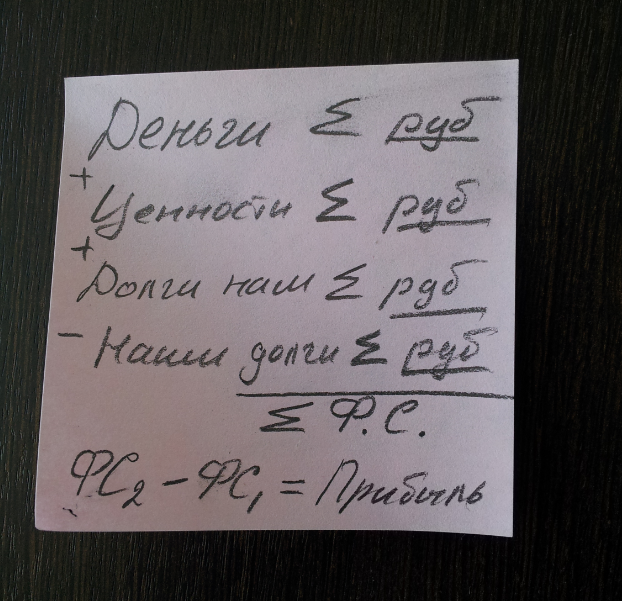 Деньги Σ руб
+
Ценности Σ руб
+
Долги нам Σ руб
- Наши долги Σ руб
Σ Ф.С.
ФС₂ - ФС₁ = Прибыль